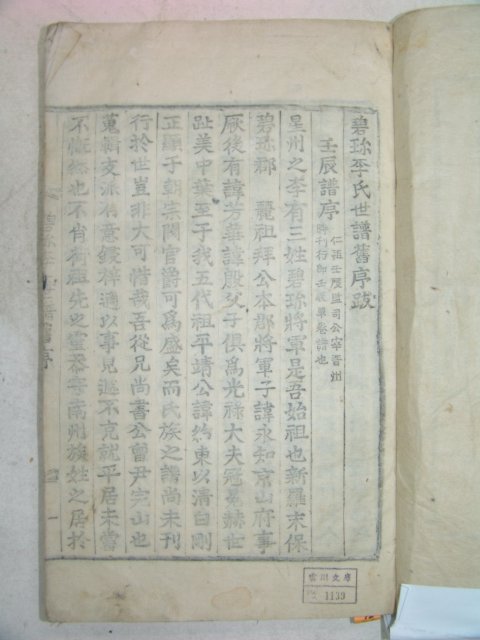 碧珍李氏世譜舊序跋
壬辰譜序
仁祖壬辰監司公宰晋州
時刊行卽壬辰單卷譜也
星州之李有三姓碧珍將軍是吾始祖也新羅末保
碧珍郡 麗祖拜公本郡將軍子諱永知京山府事
厥後有諱芳華諱殷父子俱爲光祿大夫冠冕赫世
趾美中葉至于我五代祖平靖公諱約東以清白剛
正顯于朝宗閥官爵可爲盛矣而氏族之譜尚未刊
行於世豈非大可惜哉吾從兄尚書公曾尹完山也
蒐輯支派有意鋟梓適以事見遞不克就平居未嘗
不慨然也不肖荷祖先之靈忝守南州族姓之居於
碧珍李氏世譜舊序
一
1139